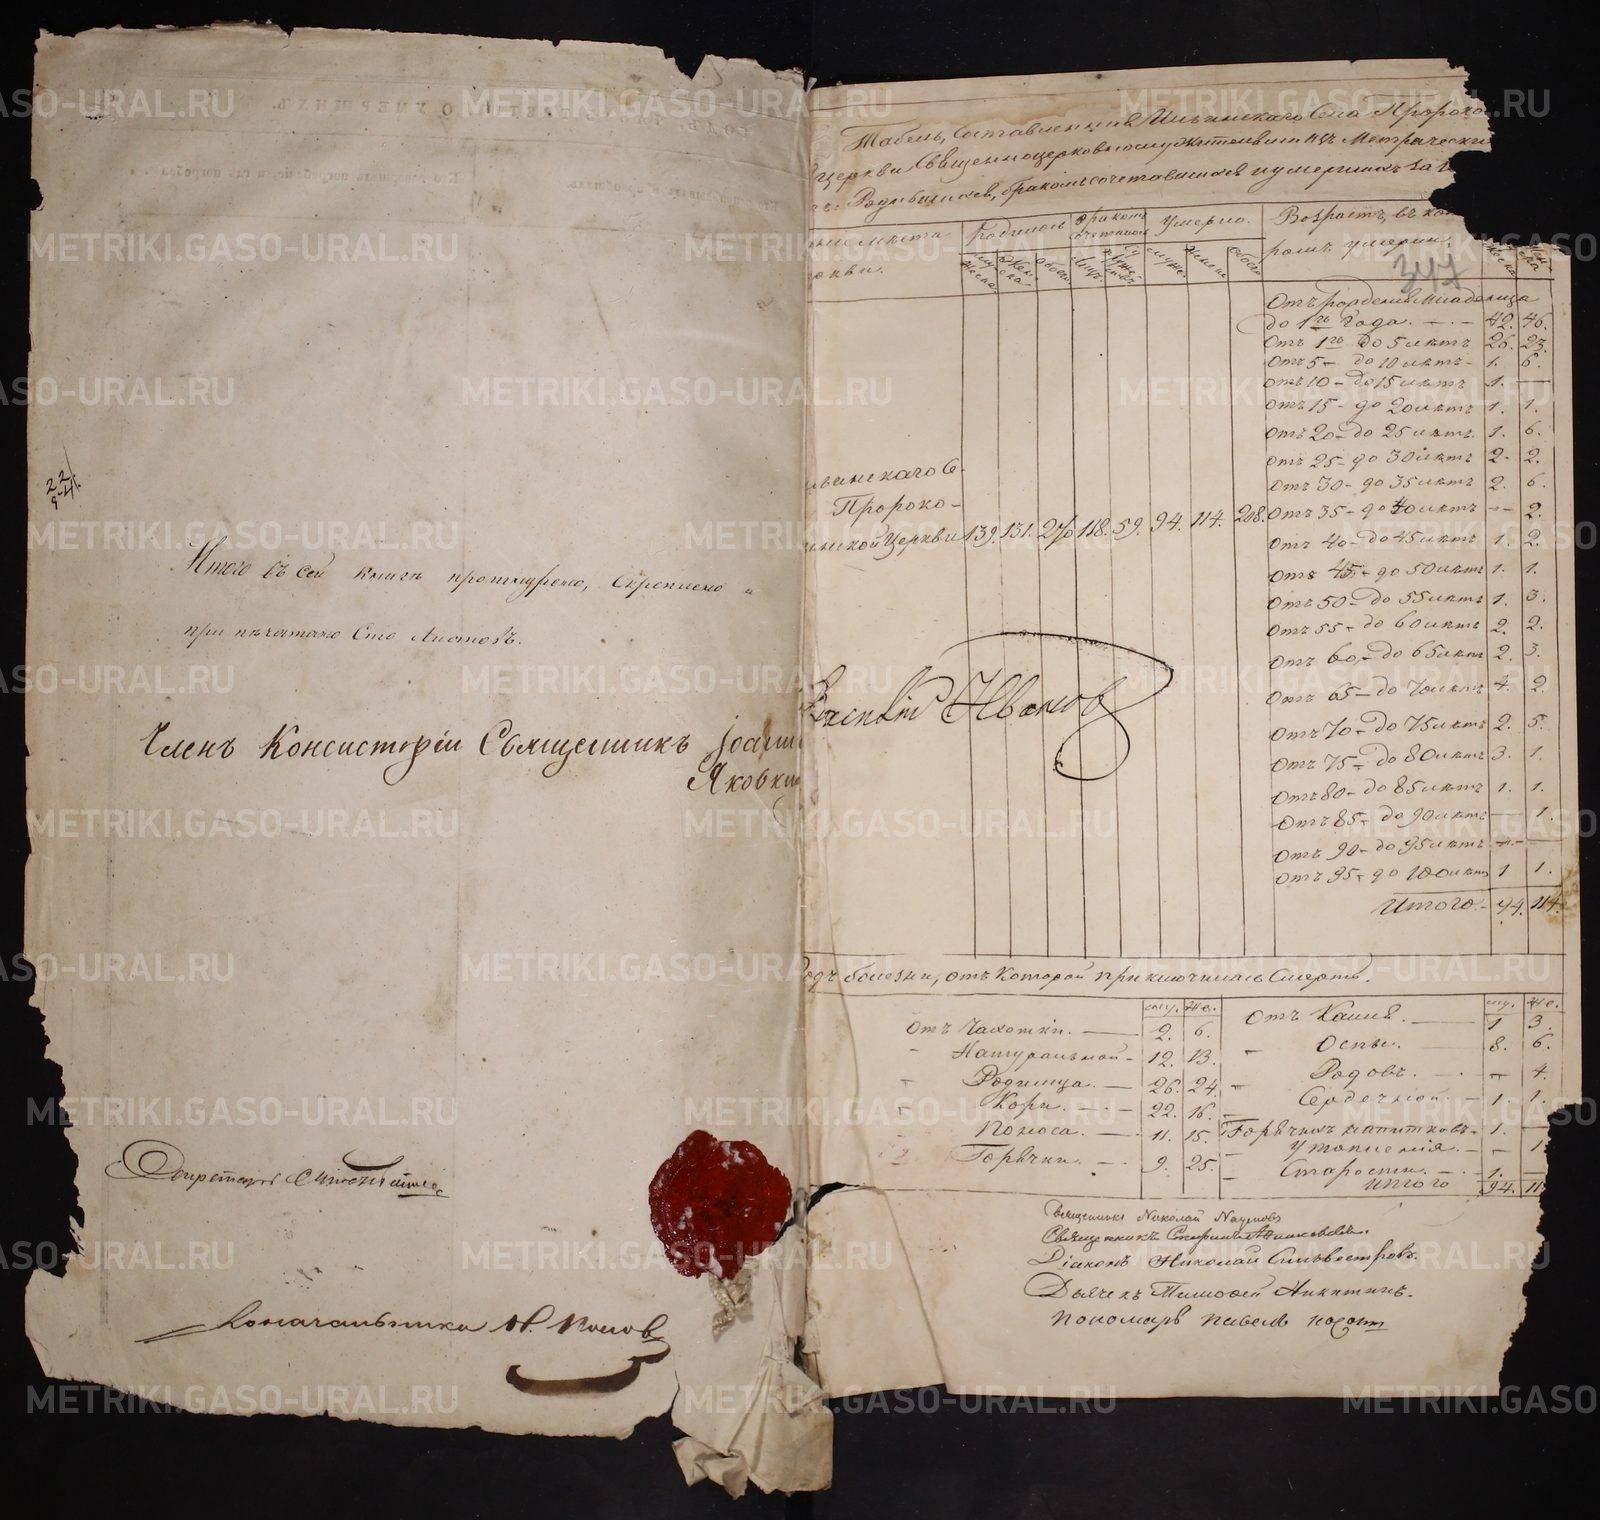 22
9-41.
Итого въ сей книгѣ прошнурено, скреплено и
припечатано Сто листовъ.
Членъ Консисторіи Священникъ Іоанн
Яковки
Секретарь
Столоначальника Н. Попов
Табель, Составленная Ильинскаго Села Пророко
церкви Священноцерковнослужителями изъ Метрически
Родившихся, бракомъ сочетавшихся и умершихъ за 1
мѣста
Родилось
бракомъ
сочеталось
Умерло.
Возрастъ, въ кот
ромъ умерли.
347
Отъ рожденія Младенца
до 1го Года. 42. 46.
Отъ 1го до 5 лѣтъ 26. 23.
Отъ 5 - до 10 лѣтъ - 1. 6.
Отъ 10 - до 15 лѣтъ 1. —
Отъ 15 - до 20 лѣтъ 1. 1.
Отъ 20 - до 25 лѣтъ. 1. 6.
Отъ 25 - до 30 лѣтъ 2. 2.
Отъ 30 - до 35 лѣтъ 2. 6.
Отъ 35 - до 40 лѣтъ — 2.
Отъ 40 - до 45 лѣтъ 1. 2.
Отъ 45 - до 50 лѣтъ 1. 1.
Отъ 50 - до 55 лѣтъ 1. 3.
Отъ 55 - до 60 лѣтъ 2. 2.
Отъ 60 - до 65 лѣтъ 2. 3.
Отъ 65 - до 70 лѣтъ 4. 2.
Отъ 70 - до 75 лѣтъ 2. 5.
Отъ 75 - до 80 лѣтъ 3. 1.
Отъ 80 - до 85 лѣтъ 1. 1.
Отъ 85 - до 90 лѣтъ — 1.
Отъ 90 - до 95 лѣтъ — —
Отъ 95 - до 100 лѣтъ 1 1.
Итого - 94. 114.
льинскаго С-
Пророко-
инской Церкви 139. 131. 270 118. 59. 94. 114. 208.
Василій Иванов
Родъ болезни, отъ Которой приключилась Смерть.
му. же. му. же.
Отъ Чахотки. 2. 6. Отъ Кашля. 1 3.
Натуральной - 12. 13. Оспы. 8. 6.
Родимца. 26. 24. Родовъ. — 4.
Кори. 22. 16. Сердечной. 1. 1.
Поноса. 11. 15. Горячихъ напитковъ. 1. —
Горячки. 9. 25. Утопленія. — 1
Старости. 1. —
Итого 94. 11
Священникъ Николай Наумовъ
Священникъ
Діаконъ Николай Сильвестровъ.
Дьячекъ Тимофей Никитинъ.
Пономарь Павелъ
METRIKI.GASO-URAL.RU